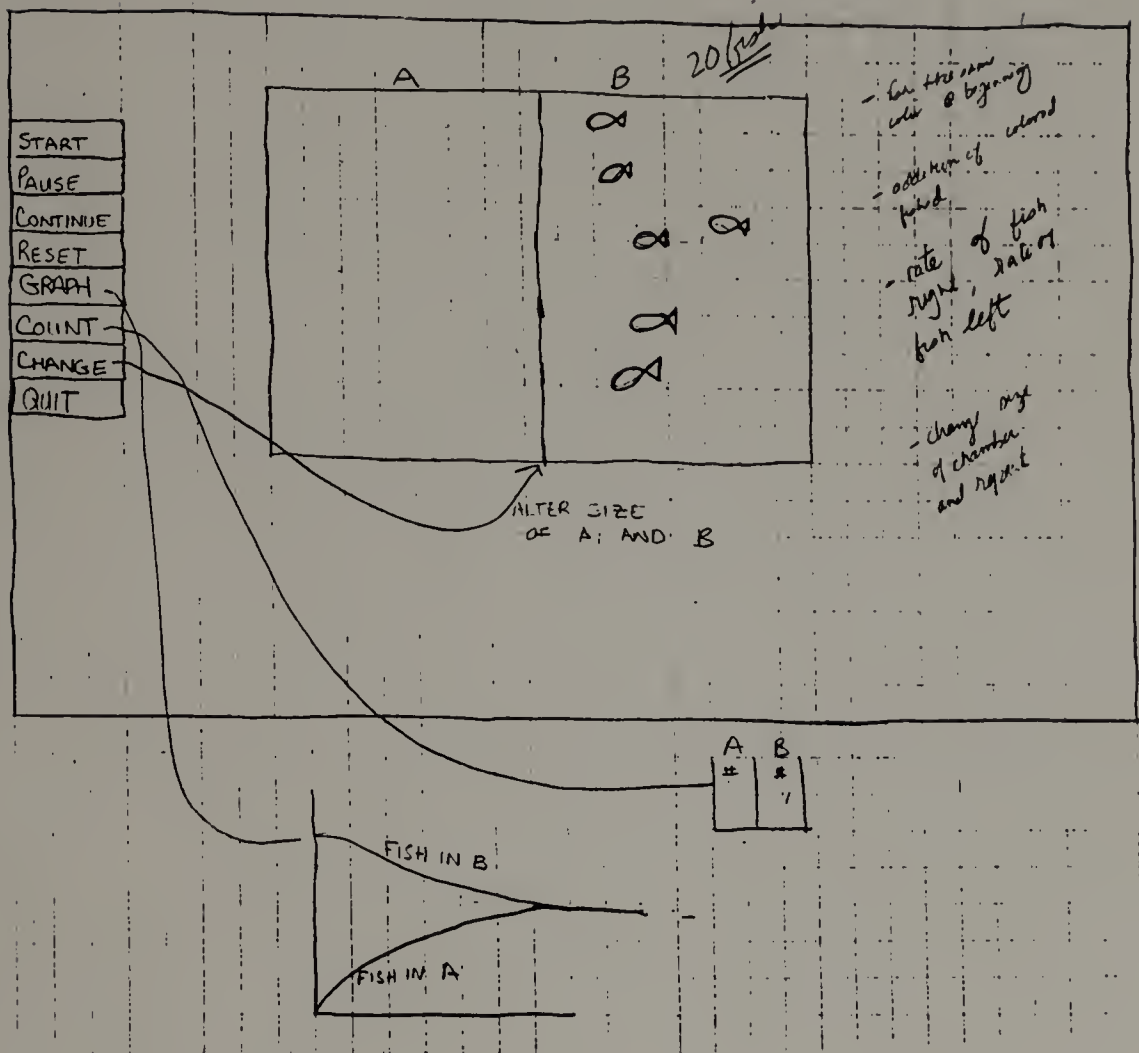 20 fish
A B
START
PAUSE
CONTINUE
RESET
GRAPH
COUNT
CHANGE
QUIT
- same
color @
- of colored
- rate of fish
right, rate of
fish left
- change size
of chamber
and repeat
ALTER SIZE
OF A; AND B
A B
# #
FISH IN B
FISH IN A